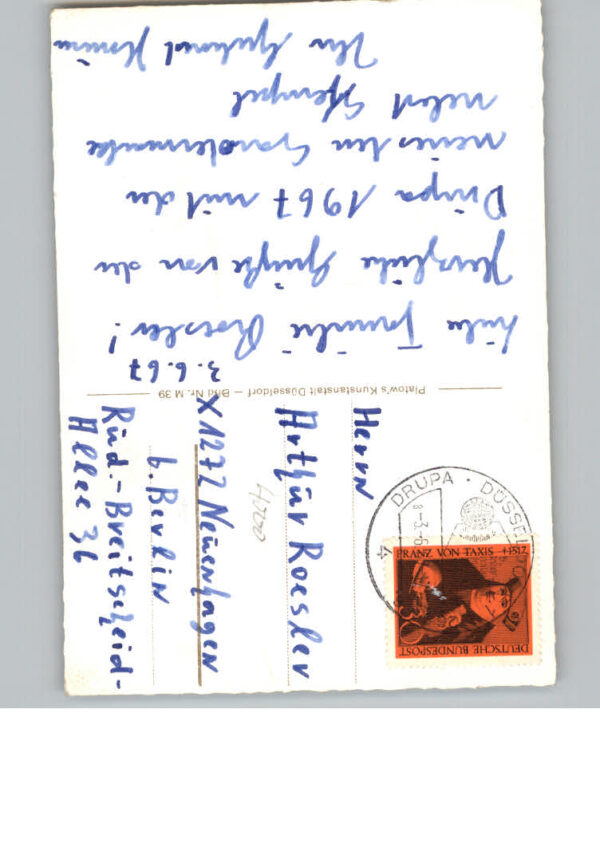 3.6.67
Liebe Familie Roesler!
Herzliche Grüße von der
Drupa 1967 mit der
neuesten Sondermarke
nebst Stempel
Ihr
Platow's Kunstanstalt Düsseldorf — Bild Nr. M 39
Herrn
Arthur Roesler
X 1272 Neuenhagen
b. Berlin
Rud.-Breitscheid-
Allee 36
DRUPA · DÜSSEL
FRANZ VON TAXIS †1517
30
DEUTSCHE BUNDESPOST